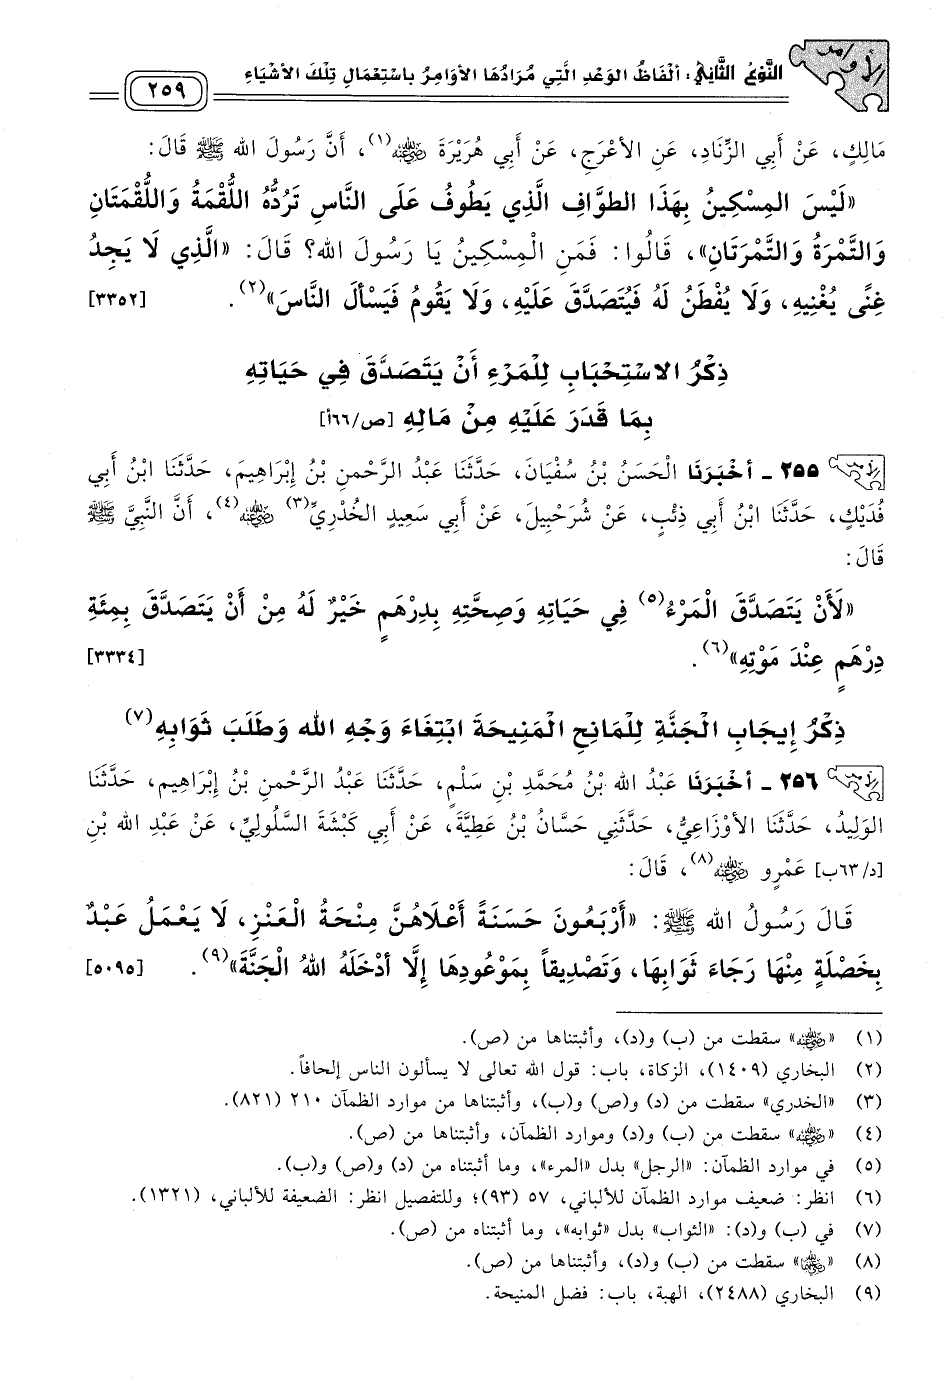 الأوامر
النَّوْعُ الثَّانِي: أَلْفَاظُ الوَعْدِ الَّتِي مُرَادُهَا الأَوَامِرُ بِاسْتِعْمَالِ تِلْكَ الأَشْيَاءِ
٢٥٩
مَالِكٍ، عَنْ أَبِي الزِّنَادِ، عَنِ الأَعْرَجِ، عَنْ أَبِي هُرَيْرَةَ رضي الله عنه(١)، أَنَّ رَسُولَ الله ﷺ قَالَ:
«لَيْسَ المِسْكِينُ بِهَذَا الطوَّافِ الَّذِي يَطُوفُ عَلَى النَّاسِ تَرُدُّهُ اللُّقْمَةُ وَاللُّقْمَتَانِ
وَالتَّمْرَةُ وَالتَّمْرَتَانِ»، قَالُوا: فَمَنِ الْمِسْكِينُ يَا رَسُولَ الله؟ قَالَ: «الَّذِي لَا يَجِدُ
غِنًى يُغْنِيهِ، وَلَا يُفْطَنُ لَهُ فَيُتَصَدَّقَ عَلَيْهِ، وَلَا يَقُومُ فَيَسْأَلَ النَّاسَ»(٢). [٣٣٥٢]
ذِكْرُ الاسْتِحْبَابِ لِلْمَرْءِ أَنْ يَتَصَدَّقَ فِي حَيَاتِهِ
بِمَا قَدَرَ عَلَيْهِ مِنْ مَالِهِ [ص/٦٦أ]
٢٥٥ - أَخْبَرَنَا الْحَسَنُ بْنُ سُفْيَانَ، حَدَّثَنَا عَبْدُ الرَّحْمنِ بْنُ إِبْرَاهِيمَ، حَدَّثَنَا ابْنُ أَبِي
فُدَيْكٍ، حَدَّثَنَا ابْنُ أَبِي ذِئْبٍ، عَنْ شُرَحْبِيلَ، عَنْ أَبِي سَعِيدٍ الخُدْرِيِّ(٣) رضي الله عنه(٤)، أَنَّ النَّبِيَّ ﷺ
قَالَ:
«لَأَنْ يَتَصَدَّقَ الْمَرْءُ(٥) فِي حَيَاتِهِ وَصِحَّتِهِ بِدِرْهَمٍ خَيْرٌ لَهُ مِنْ أَنْ يَتَصَدَّقَ بِمِئَةِ
دِرْهَمٍ عِنْدَ مَوْتِهِ»(٦). [٣٣٣٤]
ذِكْرُ إِيجَابِ الْجَنَّةِ لِلْمَانِحِ المَنِيحَةَ ابْتِغَاءَ وَجْهِ الله وَطَلَبَ ثَوَابِهِ(٧)
٢٥٦ - أَخْبَرَنَا عَبْدُ الله بْنُ مُحَمَّدِ بْنِ سَلْمٍ، حَدَّثَنَا عَبْدُ الرَّحْمنِ بْنُ إِبْرَاهِيم، حَدَّثَنَا
الوَلِيدُ، حَدَّثَنَا الأَوْزَاعِيُّ، حَدَّثَنِي حَسَّانُ بْنُ عَطِيَّةَ، عَنْ أَبِي كَبْشَةَ السَّلُولِيِّ، عَنْ عَبْدِ الله بْنِ
[د/٦٣ب] عَمْرٍو رضي الله عنه(٨)، قَالَ:
قَالَ رَسُولُ الله ﷺ: «أَرْبَعُونَ حَسَنَةً أَعْلَاهُنَّ مِنْحَةُ الْعَنْزِ، لَا يَعْمَلُ عَبْدٌ
بِخَصْلَةٍ مِنْهَا رَجَاءَ ثَوَابِهَا، وَتَصْدِيقاً بِمَوْعُودِهَا إِلَّا أَدْخَلَهُ اللهُ الْجَنَّةَ»(٩). [٥٠٩٥]
(١) «رضي الله عنه» سقطت من (ب) و(د)، وأثبتناها من (ص).
(٢) البخاري (١٤٠٩)، الزكاة، باب: قول الله تعالى لا يسألون الناس إلحافاً.
(٣) «الخدري» سقطت من (د) و(ص) و(ب)، وأثبتناها من موارد الظمآن ٢١٠ (٨٢١).
(٤) «رضي الله عنه» سقطت من (ب) و(د) وموارد الظمآن، وأثبتناها من (ص).
(٥) في موارد الظمآن: «الرجل» بدل «المرء»، وما أثبتناه من (د) و(ص) و(ب).
(٦) انظر: ضعيف موارد الظمآن للألباني، ٥٧ (٩٣)؛ وللتفصيل انظر: الضعيفة للألباني، (١٣٢١).
(٧) في (ب) و(د): «الثواب» بدل «ثوابه»، وما أثبتناه من (ص).
(٨) «رضي الله عنهما» سقطت من (ب) و(د)، وأثبتناها من (ص).
(٩) البخاري (٢٤٨٨)، الهبة، باب: فضل المنيحة.